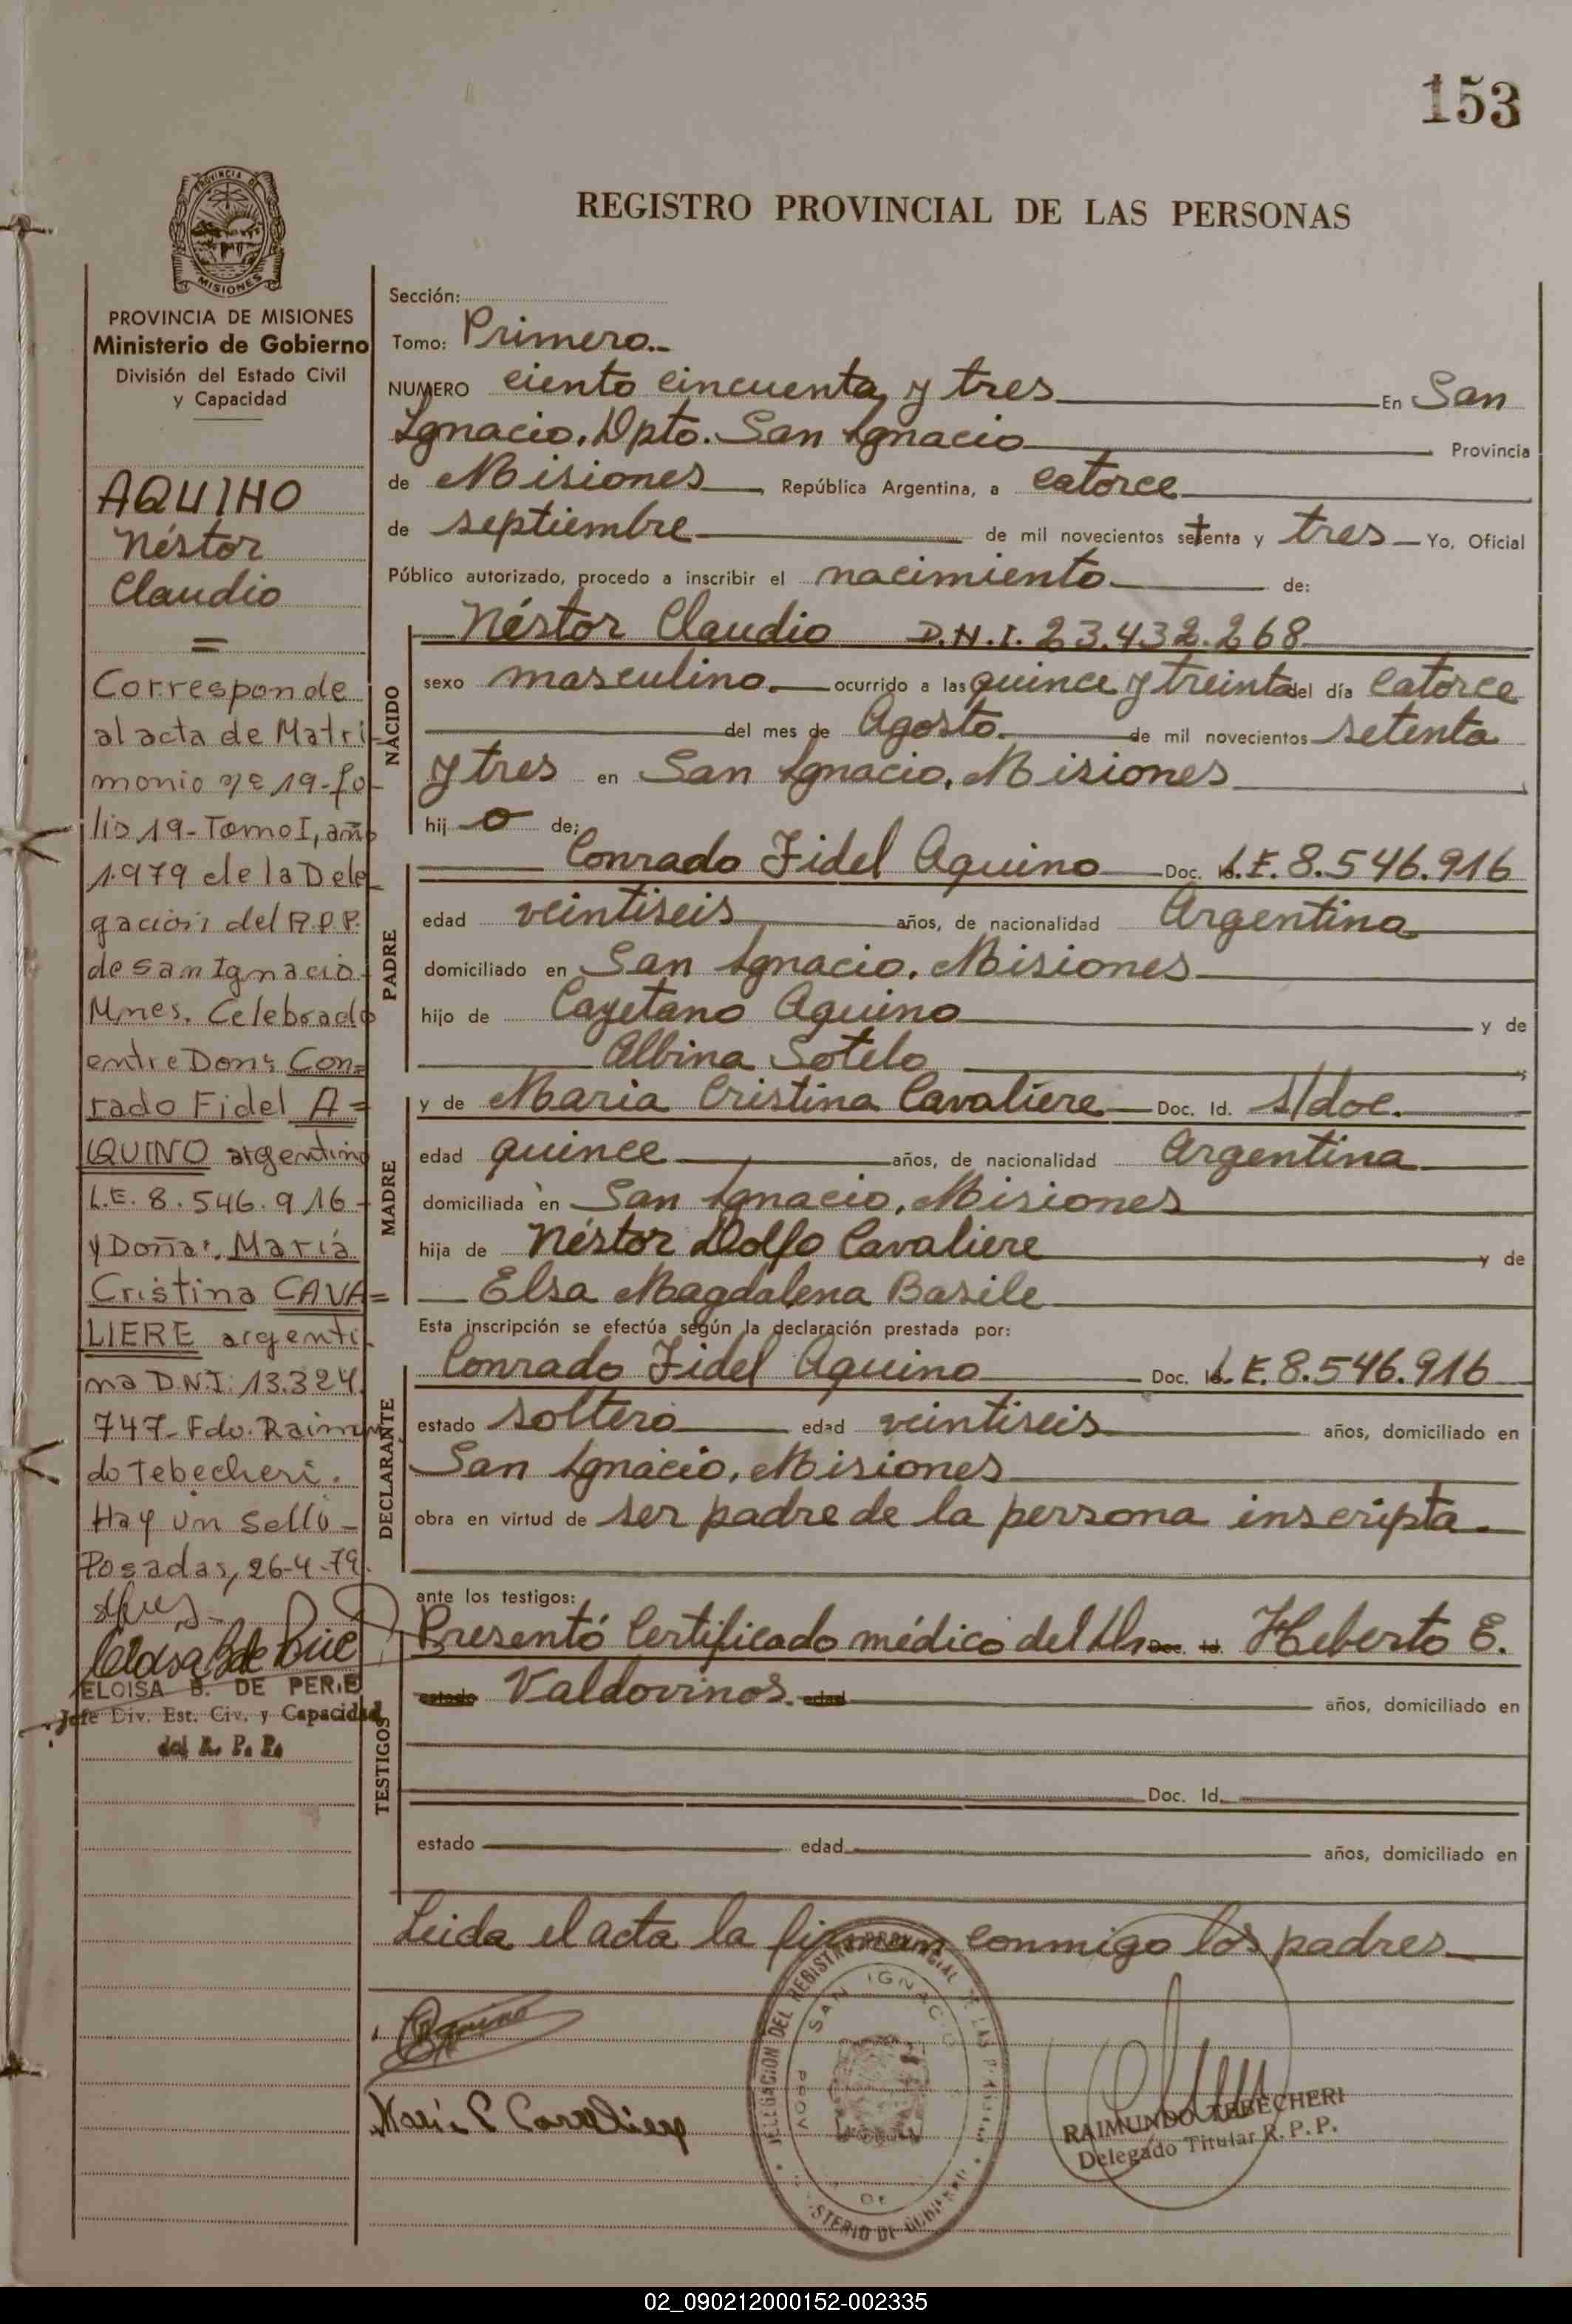 153
PROVINCIA DE
MISIONES
REGISTRO PROVINCIAL DE LAS PERSONAS
PROVINCIA DE MISIONES
Ministerio de Gobierno
División del Estado Civil
y Capacidad
AQUINO
Néstor
Claudio
=
Corresponde
al acta de Matri
monio nº 19-fo-
lio 19-Tomo I, año
1.979 de la Dele
gación del R.P.P.
de San Ignacio-
Mnes. Celebrado
entre Don: Con=
rado Fidel A=
QUINO argentino
L.E. 8.546.916-
y Doña: María
Cristina CAVA=
LIERE argenti-
na D.N.I. 13.324.
747- Fdo. Raimun
do Tebecheri.
Hay un Sello-
Posadas, 26-4-79.
ELOISA B. DE PERIE
Jefe Div. Est. Civ. y Capacidad
del R. P. P.
Sección:
Tomo: Primero.-
NUMERO ciento cincuenta y tres En San
Ignacio, Dpto. San Ignacio Provincia
de Misiones, República Argentina, a catorce
de septiembre de mil novecientos setenta y tres Yo, Oficial
Público autorizado, procedo a inscribir el nacimiento de:
NACIDO
Néstor Claudio D.N.I. 23.432.268
sexo masculino. ocurrido a las quince y treinta del día catorce
del mes de Agosto. de mil novecientos setenta
y tres en San Ignacio, Misiones
hij o de:
PADRE
Conrado Fidel Aquino Doc. L.E. 8.546.916
edad veintiseis años, de nacionalidad Argentina
domiciliado en San Ignacio, Misiones
hijo de Cayetano Aquino y de
Albina Sotelo
MADRE
y de Maria Cristina Cavaliere Doc. Id. s/doc.
edad quince años, de nacionalidad Argentina
domiciliada en San Ignacio, Misiones
hija de Néstor Dolfo Cavaliere y de
Elsa Magdalena Basile
Esta inscripción se efectúa según la declaración prestada por:
DECLARANTE
Conrado Fidel Aquino Doc. L.E. 8.546.916
estado soltero edad veintiseis años, domiciliado en
San Ignacio, Misiones
obra en virtud de ser padre de la persona inscripta.
ante los testigos:
TESTIGOS
Presentó Certificado médico del Dr. Doc. Id. Heberto E.
estado Valdovinos. edad años, domiciliado en
Doc. Id.
estado edad años, domiciliado en
Leida el acta la firman conmigo los padres
Aquino
María C Cavaliere
DELEGACION DEL REGISTRO PROVINCIAL DE LAS PERSONAS
SAN IGNACIO
PROV
DE
MINISTERIO DE GOBIERNO
RAIMUNDO TEBECHERI
Delegado Titular R. P. P.
02_090212000152-002335